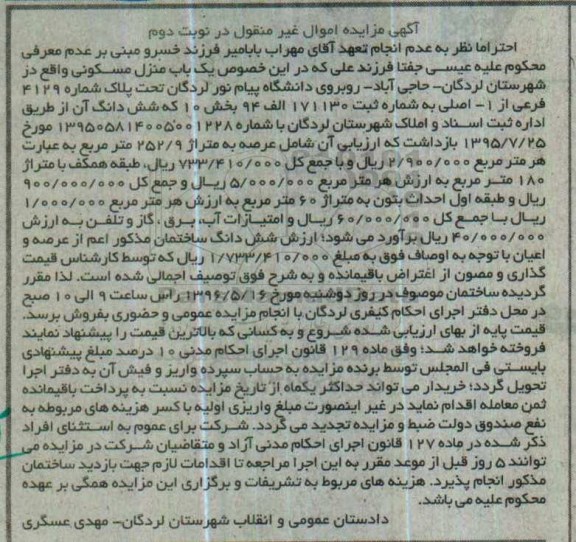 آگهی مزایده اموال غیر منقول در نوبت دوم
احتراما نظر به عدم انجام تعهد آقای مهراب بابامیر فرزند خسرو مبنی بر عدم معرفی
محکوم علیه عیسی جفتا فرزند علی که در این خصوص یک باب منزل مسکونی واقع در
شهرستان لردگان- حاجی آباد- روبروی دانشگاه پیام نور لردگان تحت پلاک شماره ۴۱۲۹
فرعی از ۱- اصلی به شماره ثبت ۱۷۱۱۳۰ الف ۹۴ بخش ۱۰ که شش دانگ آن از طریق
اداره ثبت اسناد و املاک شهرستان لردگان با شماره ۱۳۹۵۰۵۸۱۴۰۰۵۰۰۱۲۲۸ مورخ
۱۳۹۵/۷/۲۵ بازداشت که ارزیابی آن شامل عرصه به متراژ ۲۵۲/۹ متر مربع به عبارت
هر متر مربع ۲/۹۰۰/۰۰۰ ریال و با جمع کل ۷۳۳/۴۱۰/۰۰۰ ریال، طبقه همکف با متراژ
۱۸۰ متر مربع به ارزش هر متر مربع ۵/۰۰۰/۰۰۰ ریال و جمع کل ۹۰۰/۰۰۰/۰۰۰
ریال و طبقه اول احداث بتون به متراژ ۶۰ متر مربع به ارزش هر متر مربع ۱/۰۰۰/۰۰۰
ریال با جمع کل ۶۰/۰۰۰/۰۰۰ ریال و امتیازات آب، برق ، گاز و تلفن به ارزش
۴۰/۰۰۰/۰۰۰ ریال برآورد می شود؛ ارزش شش دانگ ساختمان مذکور اعم از عرصه و
اعیان با توجه به اوصاف فوق به مبلغ ۱/۷۳۳/۴۱۰/۰۰۰ ریال که توسط کارشناس قیمت
گذاری و مصون از اعتراض باقیمانده و به شرح فوق توصیف اجمالی شده است. لذا مقرر
گردیده ساختمان موصوف در روز دوشنبه مورخ ۱۳۹۶/۵/۱۶ راس ساعت ۹ الی ۱۰ صبح
در محل دفتر اجرای احکام کیفری لردگان با انجام مزایده عمومی و حضوری بفروش برسد.
قیمت پایه از بهای ارزیابی شده شروع و به کسانی که بالاترین قیمت را پیشنهاد نمایند
فروخته خواهد شد؛ وفق ماده ۱۲۹ قانون اجرای احکام مدنی ۱۰ درصد مبلغ پیشنهادی
بایستی فی المجلس توسط برنده مزایده به حساب سپرده واریز و فیش آن به دفتر اجرا
تحویل گردد؛ خریدار می تواند حداکثر یکماه از تاریخ مزایده نسبت به پرداخت باقیمانده
ثمن معامله اقدام نماید در غیر اینصورت مبلغ واریزی اولیه با کسر هزینه های مربوطه به
نفع صندوق دولت ضبط و مزایده تجدید می گردد. شرکت برای عموم به استثنای افراد
ذکر شده در ماده ۱۲۷ قانون اجرای احکام مدنی آزاد و متقاضیان شرکت در مزایده می
توانند ۵ روز قبل از موعد مقرر به این اجرا مراجعه تا اقدامات لازم جهت بازدید ساختمان
مذکور انجام پذیرد. هزینه های مربوط به تشریفات و برگزاری این مزایده همگی بر عهده
محکوم علیه می باشد.
دادستان عمومی و انقلاب شهرستان لردگان- مهدی عسگری